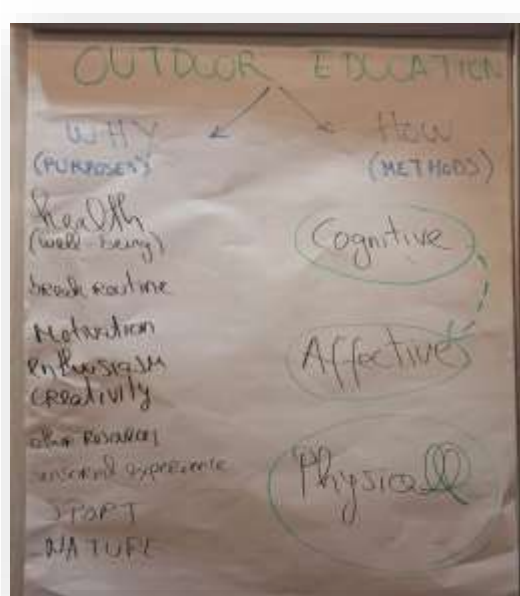 OUTDOOR EDUCATION
WHY
(PURPOSES)
health
(well-being)
break routine
Motivation
enthusiasm
CREATIVITY
other resources
sensorial experience
SPORT
NATURE
HOW
(METHODS)
Cognitive
Affective
Physical